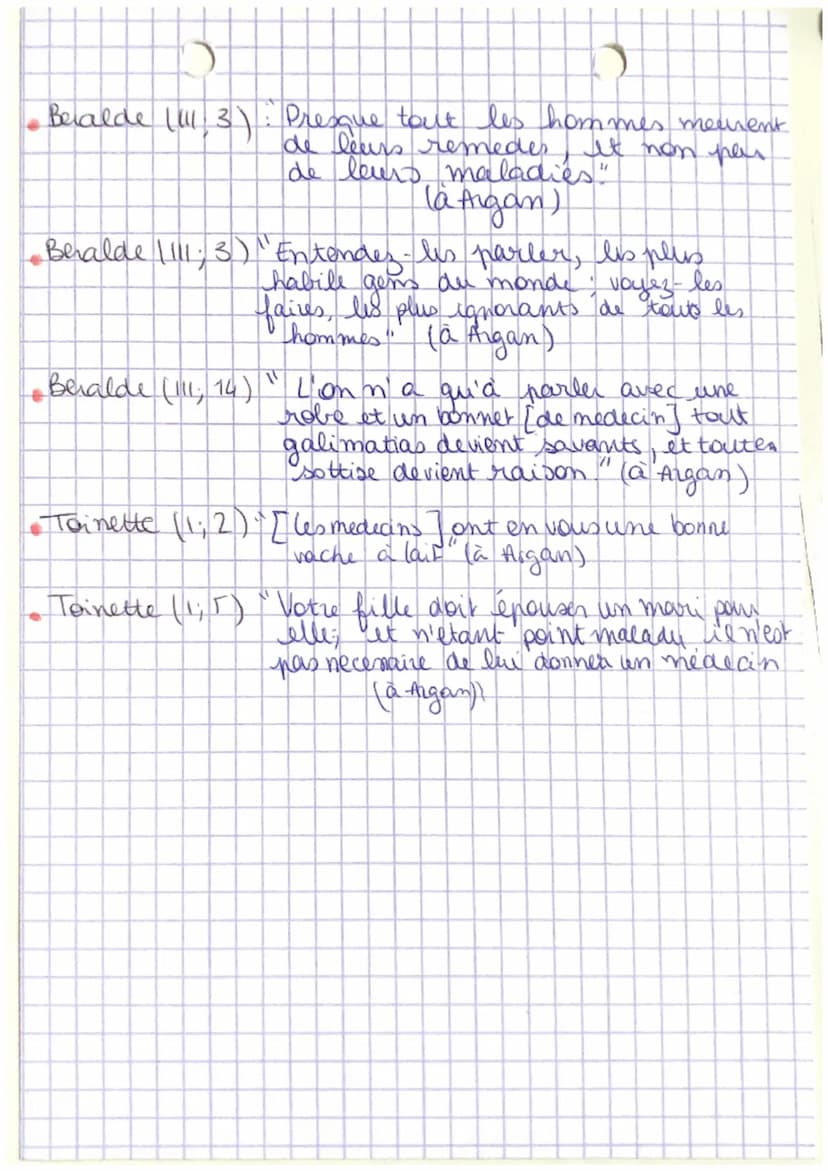 Beralde (III; 3) : "Presque tout les hommes meurent
de leurs remedes, et non pas
de leurs maladies."
(à Argan)
Beralde (III; 3) "Entendez-les parler, les plus
habile gens du monde ; voyez-les
faires, les plus ignorants de touts les
hommes" (à Argan)
Beralde (III; 14) "L'on n'a qu'à parler avec une
robe et un bonnet [de medecin] tout
galimatias devient savants, et toutes
sottise devient raison." (à Argan)
Toinette (I; 2) "[les medecins] ont en vous une bonne
vache à lait" (à Argan)
Toinette (I; 5) "Votre fille doit épouser un mari pour
elle; et n'etant point malade il n'est
pas necessaire de lui donner un médecin
(à Argan))